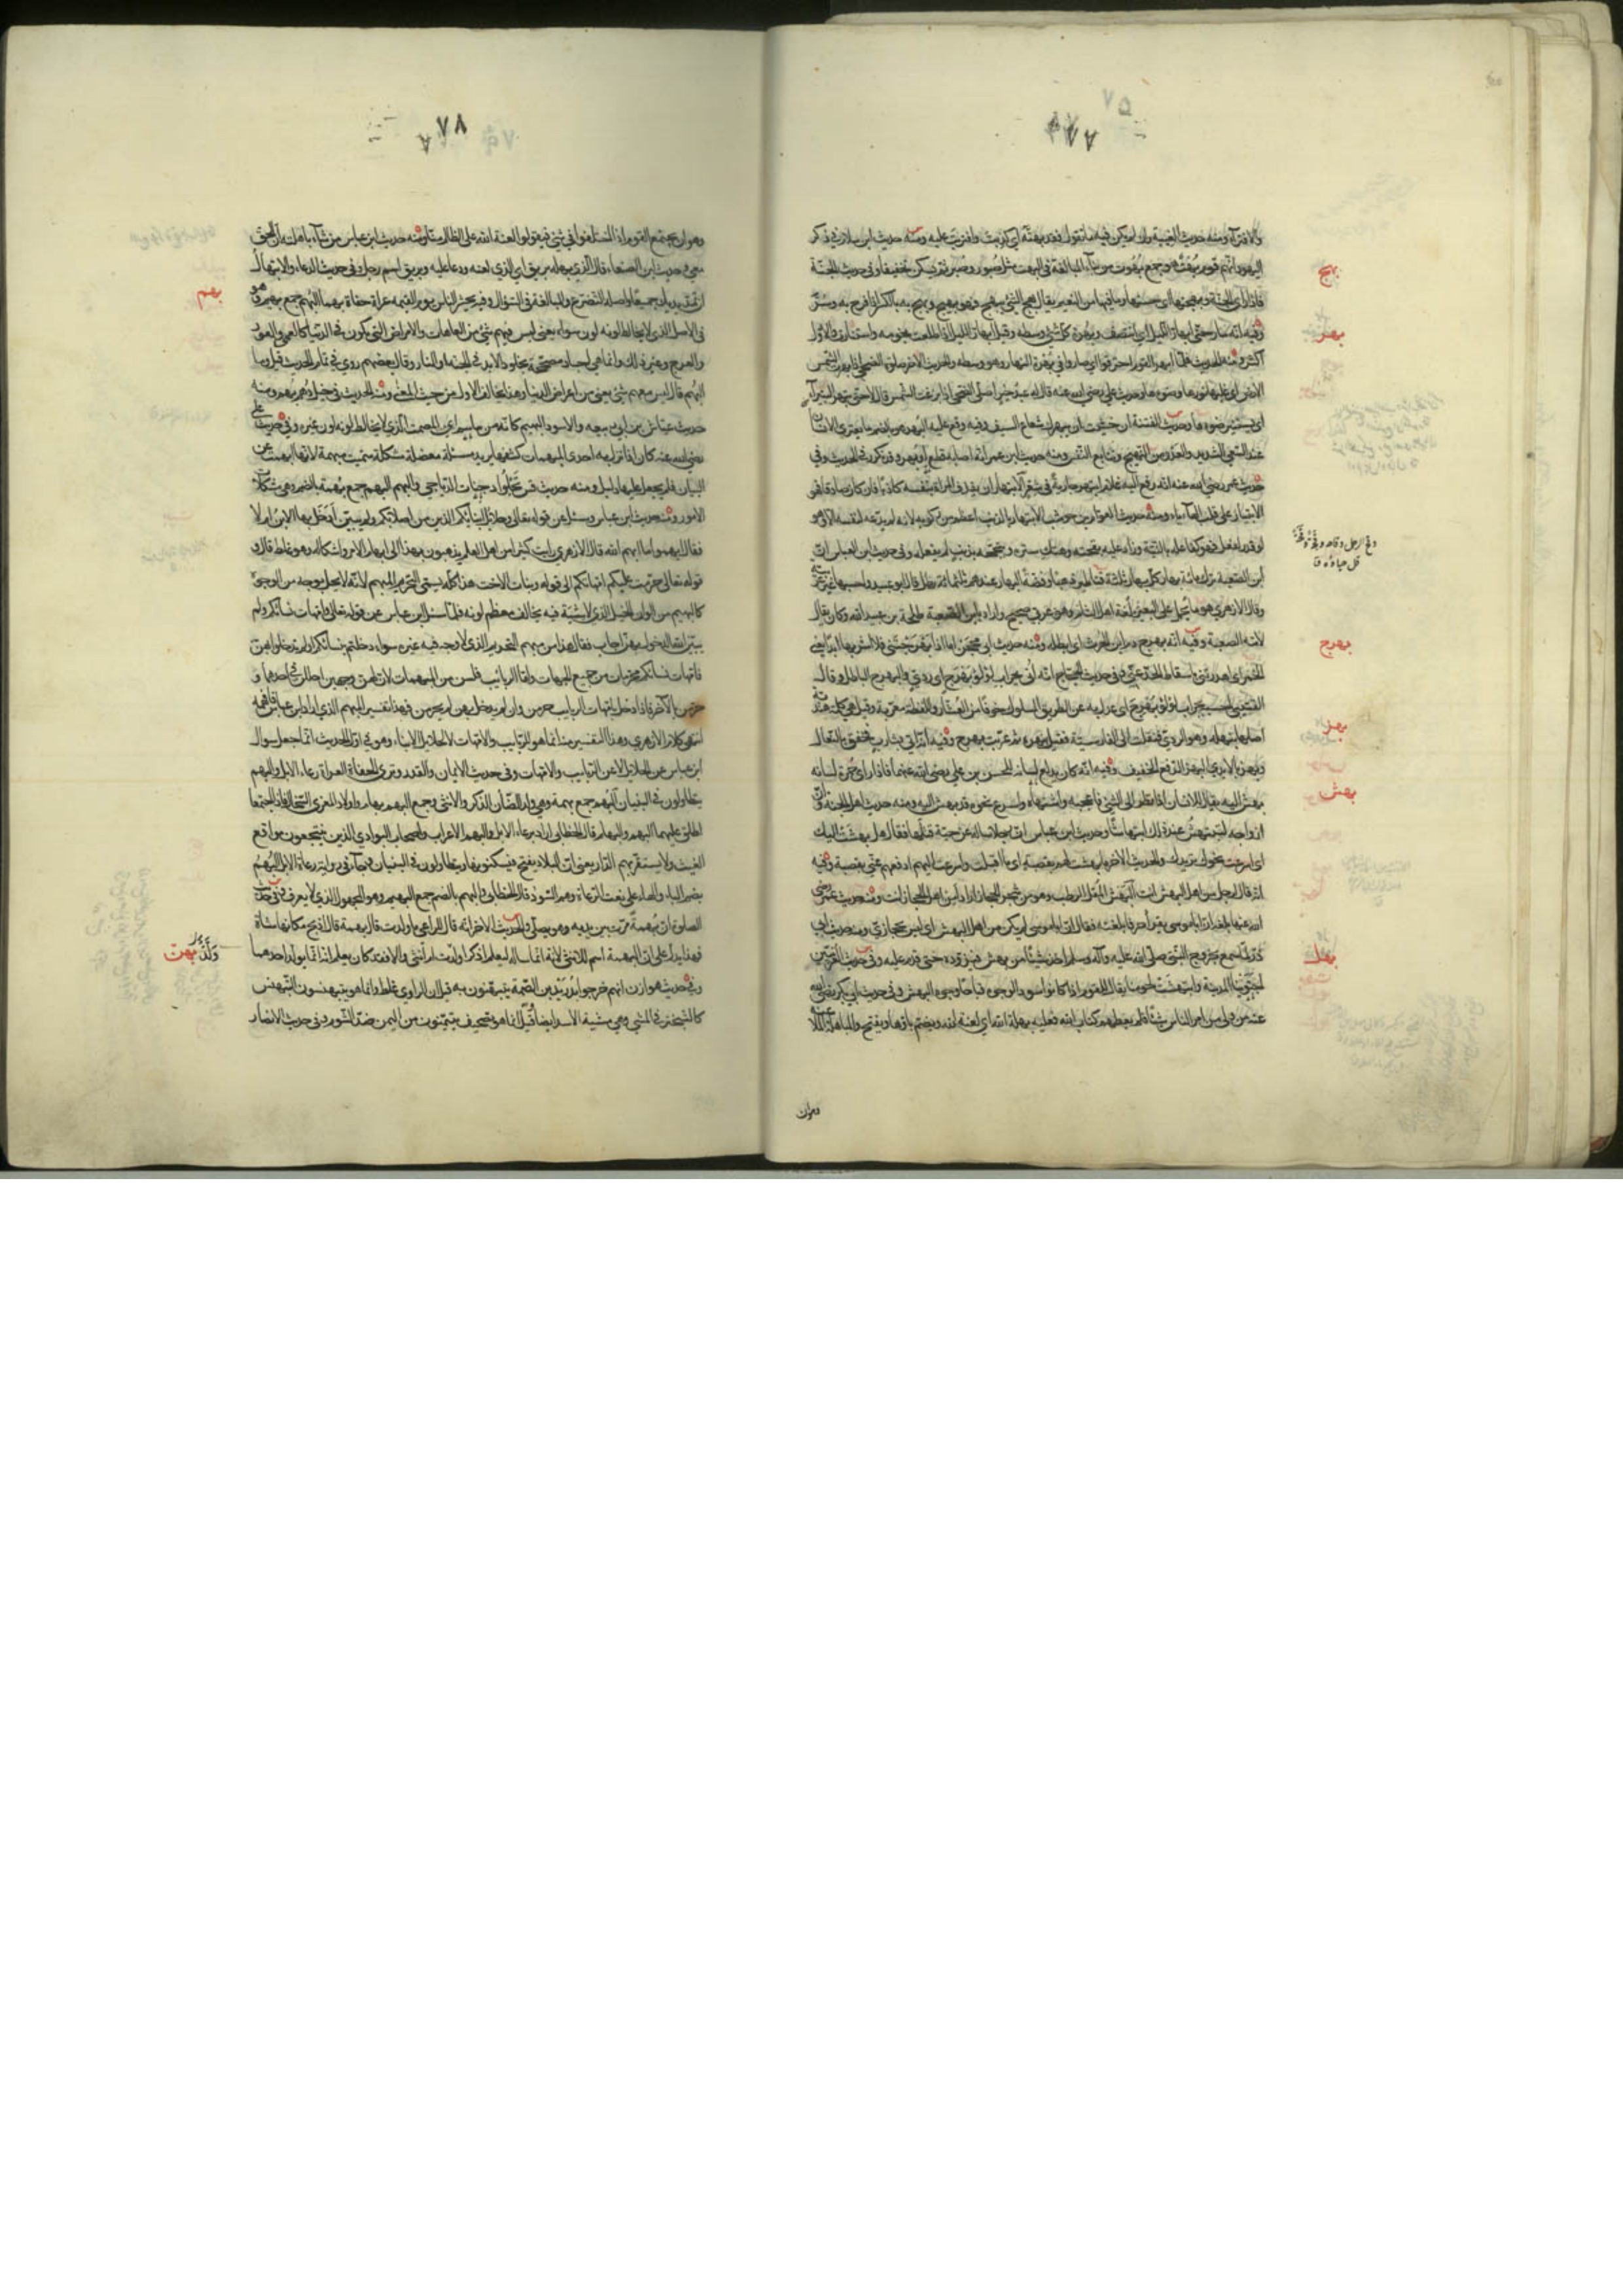 ٧٥
٧٧
والافتراء ومنه حديث الغيبة وان لم يكن فيه ما تقول فقد بهتّه اي كذبت وافتريت عليه ومنه حديث ابن سلام في ذكر
اليهود انهم قوم بُهُت هو جمع بهوت من بناء المبالغة في البهت مثل صبور وصُبر ثم سكن تخفيفا وفي حديث الجنة
بهج
فاذا راى الجنة وبهجتها اى حسنها وما فيها من النعيم يقال بهج الشئ يبهج فهو بهيج وبهج به بالكسر اذا فرح به وسُرّ
بهر
وفيه انه سار حتى ابهارّ الليل اي انتصف وبهرة كل شئ وسطه وقيل ابهارّ الليل اذا طلعت نجومه واستنارت والاول
اكثر ومنه الحديث فلما ابهر القوم احترقوا اي صاروا في بهرة النهار وهو وسطه والحديث الآخر صلوة الضحى اذا بهرت الشمس
الارض اى غلبها نورها وضوءها وحديث علي رضي الله عنه قال له عبد خير اصلي الضحى اذا بزغت الشمس قال لا حتى تبهر البتيراء
اى يستنير ضوءها وحديث الفتنة ان خشيت ان يبهرك شعاع السيف وفيه وقع عليه البهر هو بالضم ما يعتري الانسان
عند السعي الشديد والعدو من التهيج وتتابع النفس ومنه حديث ابن عمر انه اصابه قطع او بهر وقد تكرر في الحديث وفي
حديث عمر رضي الله عنه انه رفع اليه غلام ابتهر جارية في شعر الابتهار ان يقذف المراة بنفسه كاذبا فان كان صادقا فهو
الابتيار على قلب الهاء ياء ومنه حديث العوام بن حوشب الابتهار بالذنب اعظم من ركوبه لانه لم يدّعه لنفسه الا وهو
لو قدر لفعل فهو كفاعله بالنية وزاد عليه بقحته وهتك ستره وتبجحه بذنب لم يفعله وفي حديث ابن العباس ان
وقح الرجل وقاحة
قل حياؤه
ابن الصعبة ترك مائة بهار في كل بهار ثلثة قناطير ذهب وفضة البهار عندهم ثلثمائة رطل قال ابو عبيد واحسبها غير
وقال الازهري هو ما يحمل على البعير بلغة اهل الشام وهو عربي صحيح واراد بابن الصعبة طلحة بن عبيد الله وكان يقال
بهرج
لامه الصعبة وفيه انه بهرج دم ابن الحرث اى ابطله ومنه حديث ابي محجن اما اذ بهرجتني فلا اشربها ابدا يعني
الخمر اى اهدرتني باسقاط الحد عني وفي حديث الحجاج انه اُتي بجراب لؤلؤ بهرج اى ردي والبهرج الباطل وقال
القتيبي احسبه بجراب لؤلؤ بهرج اى عدل به عن الطريق المسلوك خوفا من العشّار واللفظة معربة وقيل هي كلمة هندية
بهز
اصلها نبهله وهو الردي فنقلت الى الفارسية فقيل نبهره ثم عربت بهرج وفيه انه اتى بشارب فخفق بالنعال
وبهز بالايدي البهز الدفع الخفيف وفيه انه كان يدلع لسانه للحسن بن علي رضي الله عنهما فاذا راى حمرة لسانه
بهش
بهش اليه يقال للانسان اذا نظر الى الشئ فاعجبه واشتهاه واسرع نحوه قد بهش اليه ومنه حديث اهل الجنة وان
ازواجه لتبتهش عند ذلك ابتهاشا وحديث ابن عباس ان رجلا ساله عن حية قتلها فقال هل بهشت اليك
اى اسرعت نحوك تريدك والحديث الآخر ما بهشت لهم بقصبة اى ما اقبلت واسرعت اليهم ادفعهم عني بقصبة وفيه
انه قال لرجل من اهل البهش انت البهش المقل الرطب وهو من شجر الحجاز اراد أمن اهل الحجاز انت ومنه حديث عمر رضي
الله عنه بلغه ان ابا موسى يقرأ حرفا بلغته فقال ان ابا موسى لم يكن من اهل البهش اى ليس بحجازي ومنه حديث ابي
بهل
ذر لما سمع بخروج النبي صلى الله عليه وآله وسلم اخذ شيئا من بهش فتزوده حتى قدم عليه وفي حديث العرنيين
اجتوينا المدينة وابتهشت لحومنا يقال للقوم اذا كانوا سود الوجوه قباحا وجوه البهش وفي حديث ابي بكر رضي الله
عنه من ولي من امر الناس شيئا فلم يعطهم كتاب الله فعليه بهلة الله اي لعنة الله وتضم باؤها وتفتح والمباهلة الملاعنة
وهو ان
٧٨
وهو ان يجتمع القوم اذا اختلفوا في شئ فيقولوا لعنة الله على الظالم منا ومنه حديث ابن عباس من شاء باهلته ان الحق
معي وحديث ابن الصبغاء قال الذي بهله بريق اي الذي لعنه ودعا عليه وبريق اسم رجل وفي حديث الدعاء والابتهال
بهم
ان تمد يديك جميعا واصله التضرع والمبالغة في السؤال وفيه يحشر الناس يوم القيمة عراة حفاة بهما البهم جمع بهيم وهو
في الاصل الذي لا يخالط لونه لون سواه يعني ليس فيهم شئ من العاهات والامراض التي تكون في الدنيا كالعمى والعور
والعرج وغير ذلك وانما هي اجساد مصححة لخلود الابد في الجنة او النار وقال بعضهم روي في تمام الحديث قيل وما
البهم قال ليس معهم شئ يعني من اعراض الدنيا وهذا يخالف الاول من حيث المعنى ومنه الحديث في خيل دهم بهم ومنه
حديث عياش بن ابي ربيعه والاسود البهيم كانه من ساسم اى المصمت الذي لا يخالط لونه لون غيره وفي حديث علي
رضي الله عنه كان اذا نزل به احدى المبهمات كشفها يريد مسئلة معضلة مشكلة سميت مبهمة لانها ابهمت عن
البيان فلم يجعل عليها دليل ومنه حديث قس تجلو دجنات الدياجي والبهم البهم جمع بهمة بالضم وهي مشكلات
الامور ومنه حديث ابن عباس وسئل عن قوله تعالى وحلائل ابنائكم الذين من اصلابكم ولم يبين ادخل بها الابن ام لا
فقال ابهموا ما ابهم الله قال الازهري رايت كثيرا من اهل العلم يذهبون بهذا الى ابهام الامر واشكاله وهو غلط قال و
قوله تعالى حرمت عليكم امهاتكم الى قوله وبنات الاخت هذا كله يسمى التحريم المبهم لانه لا يحل بوجه من الوجوه
كالبهيم من الوان الخيل الذي لا شية فيه يخالف معظم لونه فلما سئل ابن عباس عن قوله تعالى وامهات نسائكم ولم
يبين الله الدخول بهن اجاب فقال هذا من مبهم التحريم الذي لا وجه فيه غيره سواء دخلتم بنسائكم او لم تدخلوا بهن
فامهات نسائكم محرمات من جميع الجهات واما الربائب فلسن من المبهمات لان لهن وجهين احللن في احدهما و
حرمن بالآخر فاذا دخل بامهات الربايب حرمن وان لم يدخل بهن لم يحرمن فهذا تفسير المبهم الذي اراد ابن عباس فافهمه
انتهى كلام الازهري وهذا التفسير منه انما هو للربايب والامهات لا لحلائل الابناء وهو في اول الحديث انما جعل سوال
ابن عباس عن الحلائل لا عن الربايب والامهات وفي حديث الايمان والقدر وترى الحفاة العراة رعاء الابل والبهم
يتطاولون في البنيان البهم جمع بهمة وهي ولد الضان الذكر والانثى وجمع البهم بهام واولاد المعزى السخال فاذا اجتمعا
اطلق عليهما البهم والبهام قال الخطابي اراد برعاء الابل والبهم الاعراب واصحاب البوادي الذين ينتجعون مواقع
الغيث ولا يستقر بهم الدار يعني ان البلاد يفتح فيسكنونها ويتطاولون في البنيان وجاء في رواية رعاة الابل البُهُم
بضم الباء والهاء على نعت الرعاة وهم السود قال الخطابي والبهم بالضم جمع البهيم وهو المجهول الذي لا يعرف وفي حديث
الصلوة ان بهمة مرت بين يديه وهو يصلي والحديث الآخر انه قال للراعي ما ولدت قال بهمة قال اذبح مكانها شاة
وَلَّدْتَ
بهن
فهذا يدل على ان البهمة اسم للانثى لانه انما ساله ليعلم اذكرا ولدت ام انثى والا فقد كان يعلم انه انما يولد احدهما
وفي حديث هوازن انهم خرجوا بدُرَيد بن الصمة يتبهنون به قيل ان الراوي غلط وانما هو يتبهنسون التبهنس
كالتبختر في المشي وهي مشية الاسد ايضا وقيل انما هو تصحيف يتيمنون به من اليمن ضد الشؤم وفي حديث الانصار